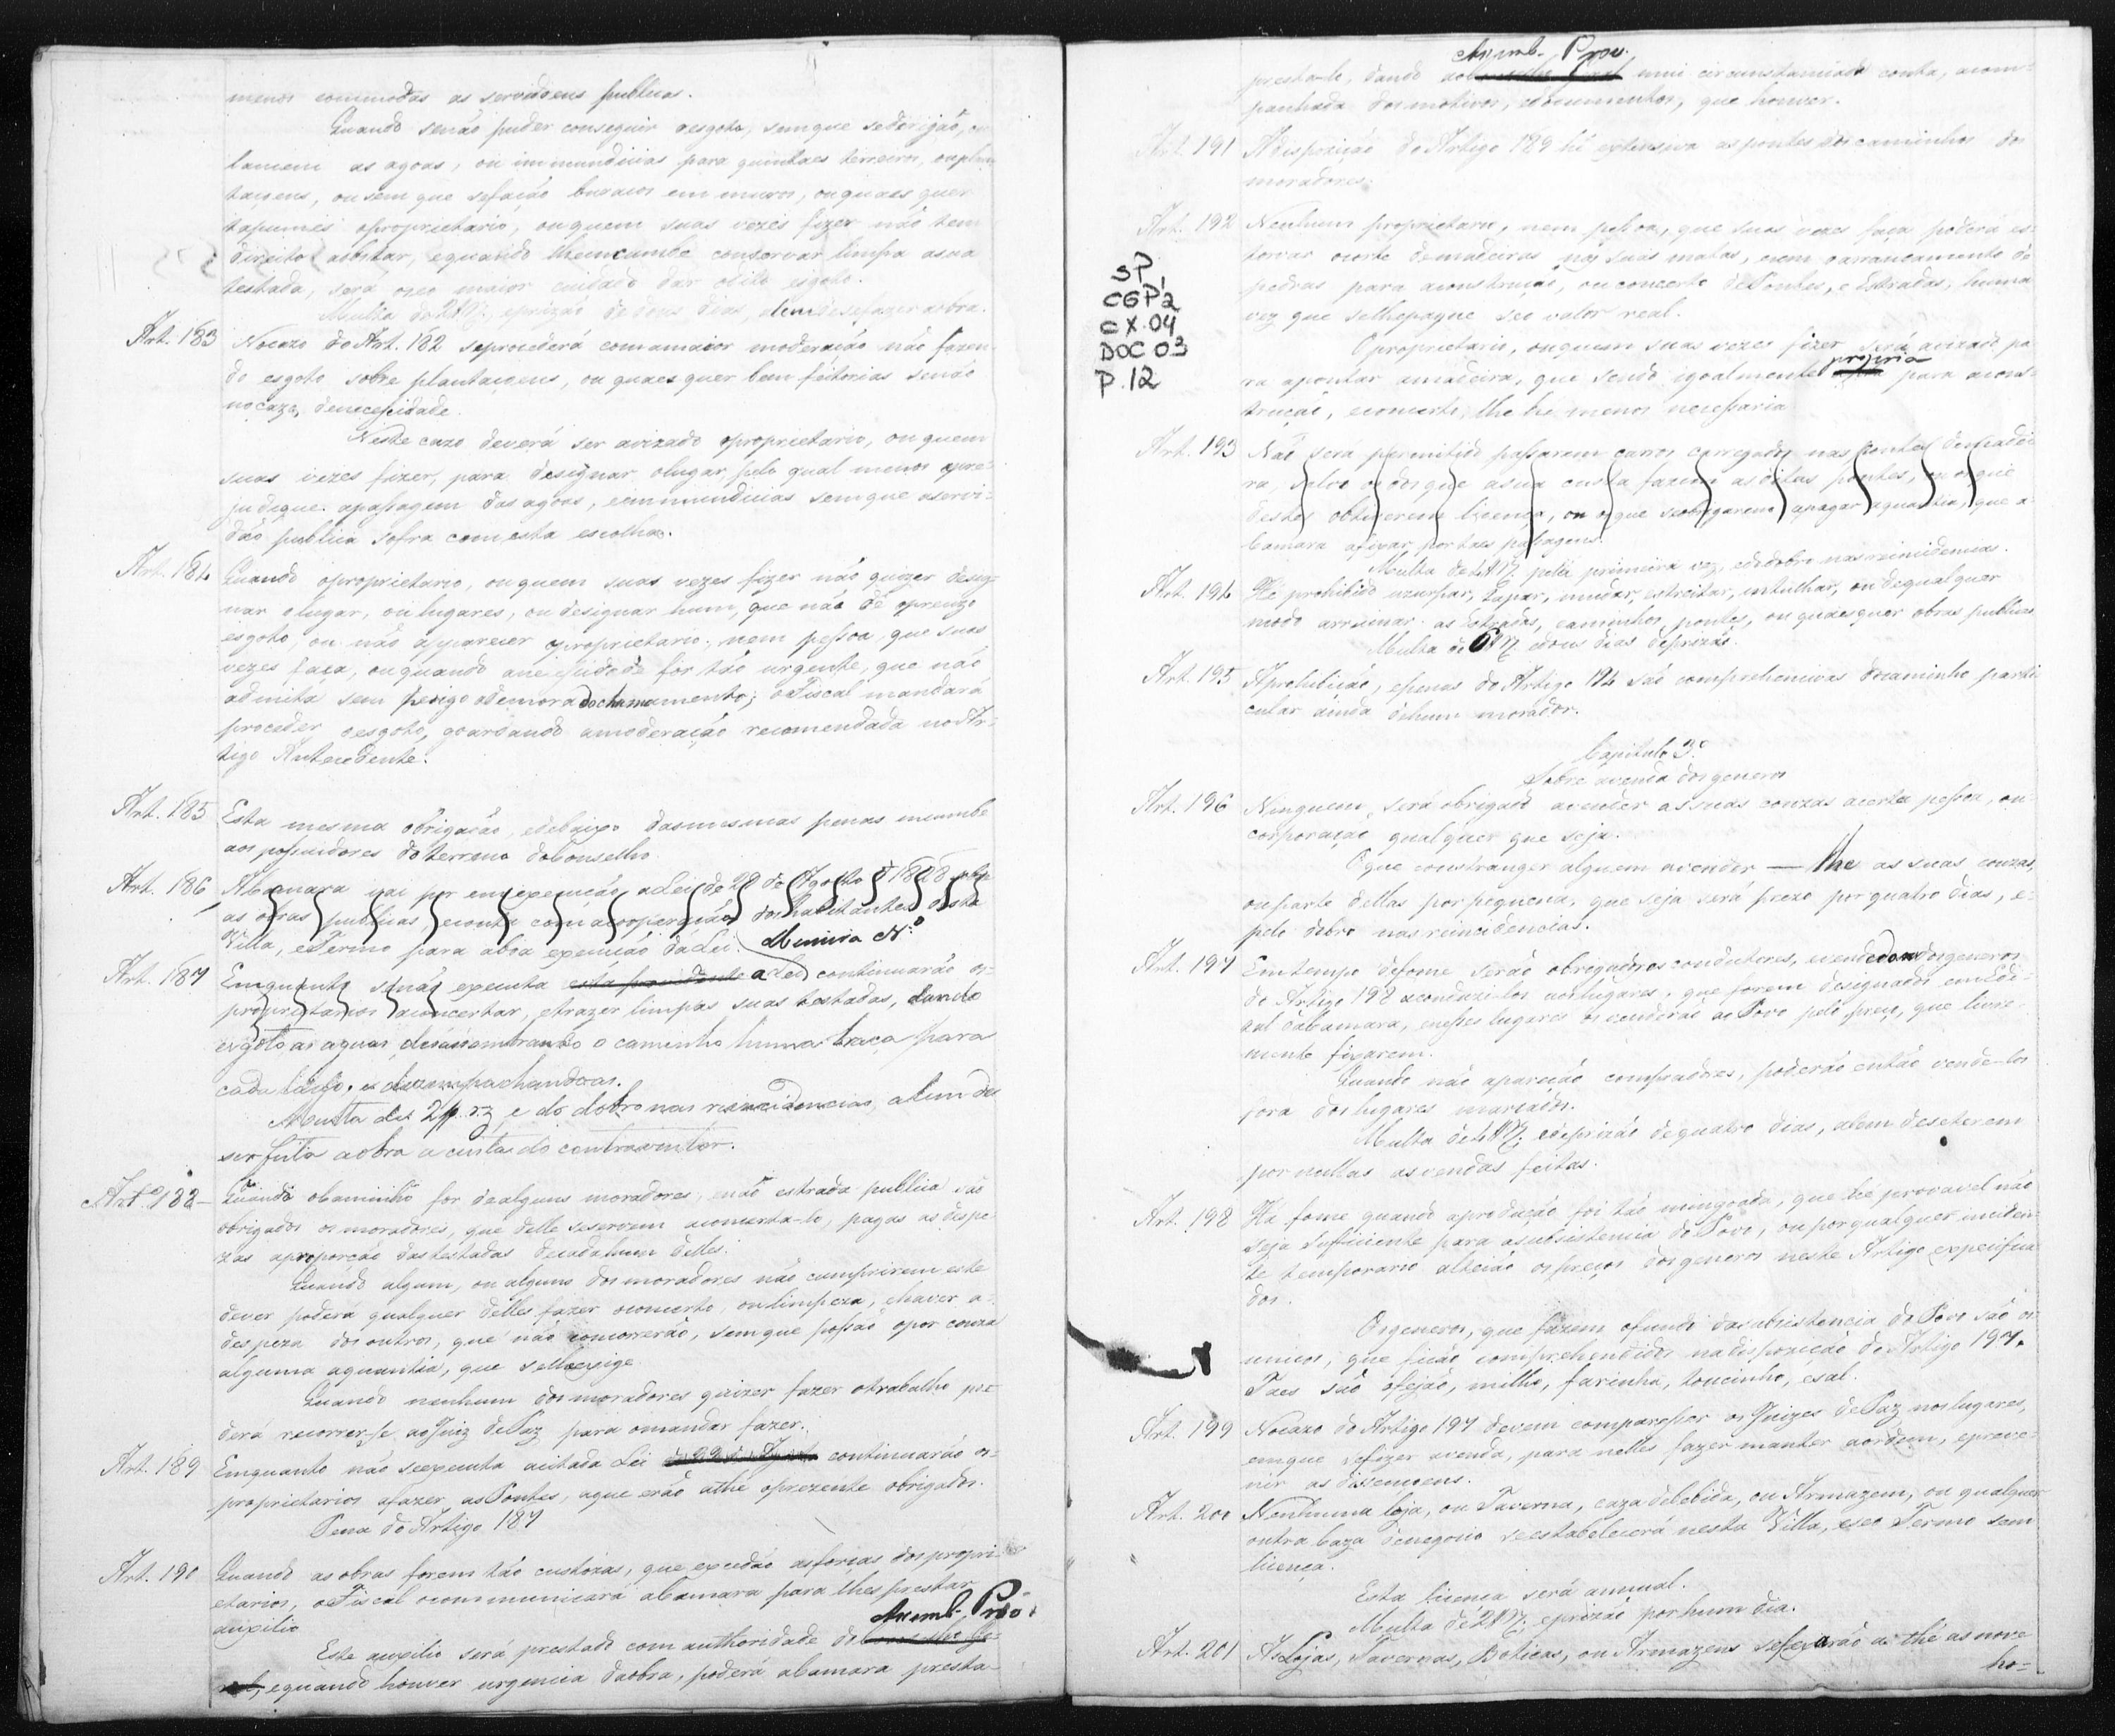 menos commodas as servidoens publicas.
Quando senão puder conseguir oesgoto, semque sedirijão, ou
lancem as agoas, ou immundicias para quintaes terreiros, ouplan
tacoens, ou sem que sefação buracos em muros, ouquaes quer
tapumes oproprietario, ouquem suas vezes fizer não tem
direito a obstar, equando lheincumbe conservar limpa asua
testada, será oseo maior cuidado dar odito esgoto.
Multa de 2$ rz, eprizão de dous dias, alem desefazer aobra.
Art. 183 Nocazo do Art. 182 seprocederá comamaior moderação não fazen
do esgoto sobre plantacoens, ou quaes quer bem feitorias senão
nocazo denecessidade.
Neste cazo deverá ser avizado oproprietario, ou quem
suas vezes fizer, para designar olugar, pelo qual menos opre-
judique apassagem das agoas, eimmundicias semque aservi-
dão publica sofra com esta escolha.
Art. 184 Quando oproprietario, ouquem suas vezes fizer não quizer desig-
nar olugar, ou lugares, ou designar hum, que não dê oprecizo
esgoto, ou não apparecer oproprietario, nem pessoa, que suas
vezes faça, ouquando anecessidade for tão urgente, que não
admita sem perigo ademora dochamamento; oFiscal mandará
proceder oesgoto, goardando amoderação recomendada noAr-
tigo Antecedente.
Art. 185 Esta mesma obrigacão, edebaixo dasmesmas penas incumbe
aos possuidores do terreno doConselho.
Art. 186 ACamara vai por em execução aLei de 29 de Agosto d 1828 sobre
as obras publicas, econta com acooperação dos habitantes desta
Villa, eTermo para aboa execução da Lei.
Art. 187 Emquanto senão executa esta a Lei continuarão os
proprietarios aconcertar, etrazer limpas suas testadas, dando
esgoto as aguas, desassombrando o caminho huma braça para
cada lado, e
Multa de 2$ rz, e do dobro nas reincidencias, alem de
ser feita aobra a custa do contraventor.
Art. 188 Quando oCaminho for dealguns moradores, enão estrada publica são
obrigados os moradores, que delle seservem aconcerta-lo, pagas as despe
zas aproporção dastestadas decadahum delles.
Quando algum, ou alguns dos moradores não cumprirem este
dever poderá qualquer delles fazer oconcerto, oulimpeza, ehaver a
despeza dos outros, que não concorrerão, semque possão opor couza
alguma aquantia, que selheexige.
Quando nenhum dos moradores quizer fazer otrabalho po-
derá recorrer-se aoJuiz dePaz para omandar fazer.
Art. 189 Emquanto não seexecuta acitada Lei continuarão os
proprietarios afazer asPontes, aque erão athé oprezente obrigados.
Pena do Artigo 187
Art. 190 Quando as obras forem tão custozas, que excedão asforças dos propri-
etarios, oFiscal ocommunicará aCamara para lhes prestar
auxilio
Assemb. Prov.
Este auxilio será prestado com authoridade do
equando houver urgencia daobra, poderá aCamara presta-
Assemb. Prov.
presta-lo, dando ao uma circunstanciada conta, acom-
panhada dos motivos, edocumentos, que houver.
Art. 191 Adisposição do Artigo 189 hé extensiva aspontes dos caminhos dos
moradores.
SP,
CGP2
CX.04
DOC 03
P.12
Art. 192 Nenhum proprietario, nem pessoa, que suas vezes faça poderá es-
torvar ocorte demadeiras nas suas matas, nem oarrancamento de
pedras para aconstrução, ouconcerto dePontes, e Estradas, huma
vez que selhepague seo valor real.
Oproprietario, ouquem suas vezes fizer será avizado pa
ra apontar amadeira, que sendo igoalmente propria para acons-
trução, econcerto, lhe he menos necessaria
Art. 193 Não será permitido passarem carros carregados nas Pontes demadei
ra, salvo osdosque asua custa fazem asditas pontes, ou osque
destes obtiverem licença, ou osque seobrigarem apagar aquantia, que a
Camara afixar por taes passagens.
Multa de 4$ rz pela primeira vez, edodobro nas reincidencias.
Art. 194 Hé prohibido uzurpar, tapar, mudar, estreitar, entulhar, ou dequalquer
modo arruinar as Estradas, caminhos, pontes, ou quaesquer obras publicas
Multa de 6$ rz edous dias deprizão.
Art. 195 Aprohibicão, epenas do Artigo 194 são comprehencivas docaminho parti
cular ainda dehum morador.
Capitulo 3º
Sobre avenda dosgeneros
Art. 196 Ninguem será obrigado avender assuas couzas acerta pessoa, ou
corporação qualquer que seja.
Oque constranger alguem avender — lhe as suas couzas,
ouparte dellas porpequena, que seja será prezo porquatro dias, e
pelo dobro nas reincidencias.
Art. 197 Emtempo defome serão obrigados os condutores, evendedores dosgeneros
do Artigo 198 aconduzi-los aoslugares, que forem designados emEdi-
tal daCamara, enesses lugares os venderão ao Povo pelo preço, que livre
mente fixarem.
Quando não apareção compradores, poderão então vende-los
fora dos lugares marcados.
Multa de 4$ rz. edeprizão dequatro dias, alem deseterem
por nullas asvendas feitas.
Art. 198 Há fome quando aprodução foi tão mingoada, que hé provavel não
seja sufficiente para asubsistencia do Povo, ou porqualquer inciden-
te temporario alteião ospreços dosgeneros neste Artigo expecifica
dos.
Osgeneros, que fazem ofundo dasubsistencia do Povo são os
unicos, que ficão comprehendidos nadisposição do Artigo 197.
Taes são ofejão, milho, farinha, toucinho, esal.
Art. 199 Nocazo do Artigo 197 devem comparesser os Juizes dePaz noslugares,
emque sefizer avenda, para nelles fazer manter aordem, epreve-
nir as dissencoens.
Art. 200 Nenhuma loja, ou Taverna, caza debebida, ou Armazem, ou qualquer
outra Caza denegocio seestabelecerá nesta Villa, eseo Termo sem
licença.
Esta licença será annual.
Multa de 2$ rz. eprizão porhum dia.
Art. 201 AsLojas, Tavernas, Boticas, ou Armazens sefexarão athé as nove
ho-